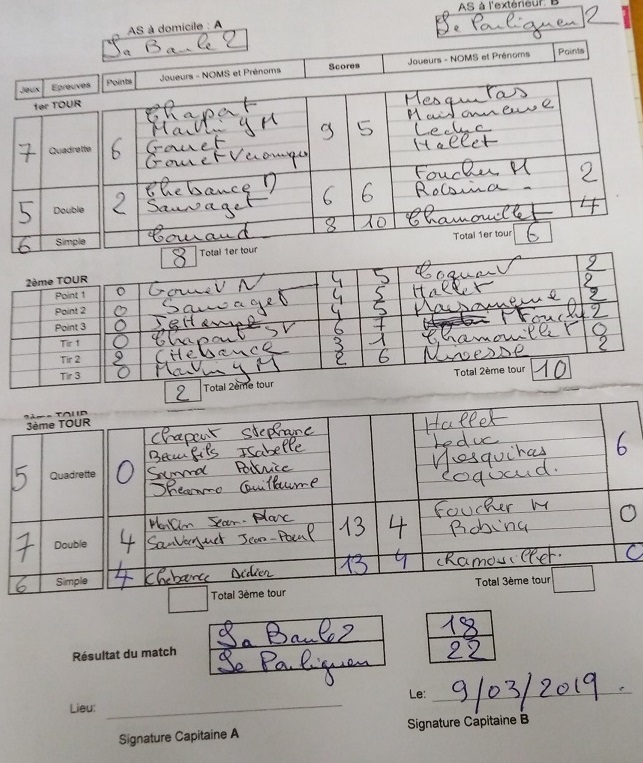 AS à domicile : A
La Baule 2
AS à l'extérieur B
Le Pouliguen 2
Jeux Epreuves Points Joueurs - NOMS et Prénoms Scores Joueurs - NOMS et Prénoms Points
1er TOUR
7 Quadrette 6 9 5
Chapart
Martin y M
Gouret
Gouret Veronique
Mesquitas
Maisonneuve
Leduc
Hallet
5 Double 2 6 6 2
Chebance D
Sauvaget
Foucher M
Robina
6 Simple Couraud 8 10 Chamouillet 4
8 Total 1er tour
Total 1er tour 6
2ème TOUR
Point 1 0 4 5 2
Point 2 0 Sauvaget 4 5 Hallet 2
Point 3 0 6 7 Foucher 2
Tir 1 0 Chapart Chamouillet 0
Tir 2 2 Chebance 3 1
Tir 3 0 Martin y M 2 6 2
2 Total 2ème tour
Total 2ème tour 10
3ème TOUR
5 Quadrette 0 6
Chapart Stephane
Beaufils Isabelle
Patrice
Guillaume
Hallet
Leduc
Mesquitas
Coquaud.
7 Double 4 13 4 0
Martin Jean-Marc
Sauvaguet Jean-Paul
Foucher M
Robina
6 Simple 4 Chebance Didier 13 4 Chamouillet. 0
Total 3ème tour
Total 3ème tour
Résultat du match
La Baule 2 18
Le Pouliguen 22
Lieu:
Le: 9/03/2019.
Signature Capitaine A
Signature Capitaine B